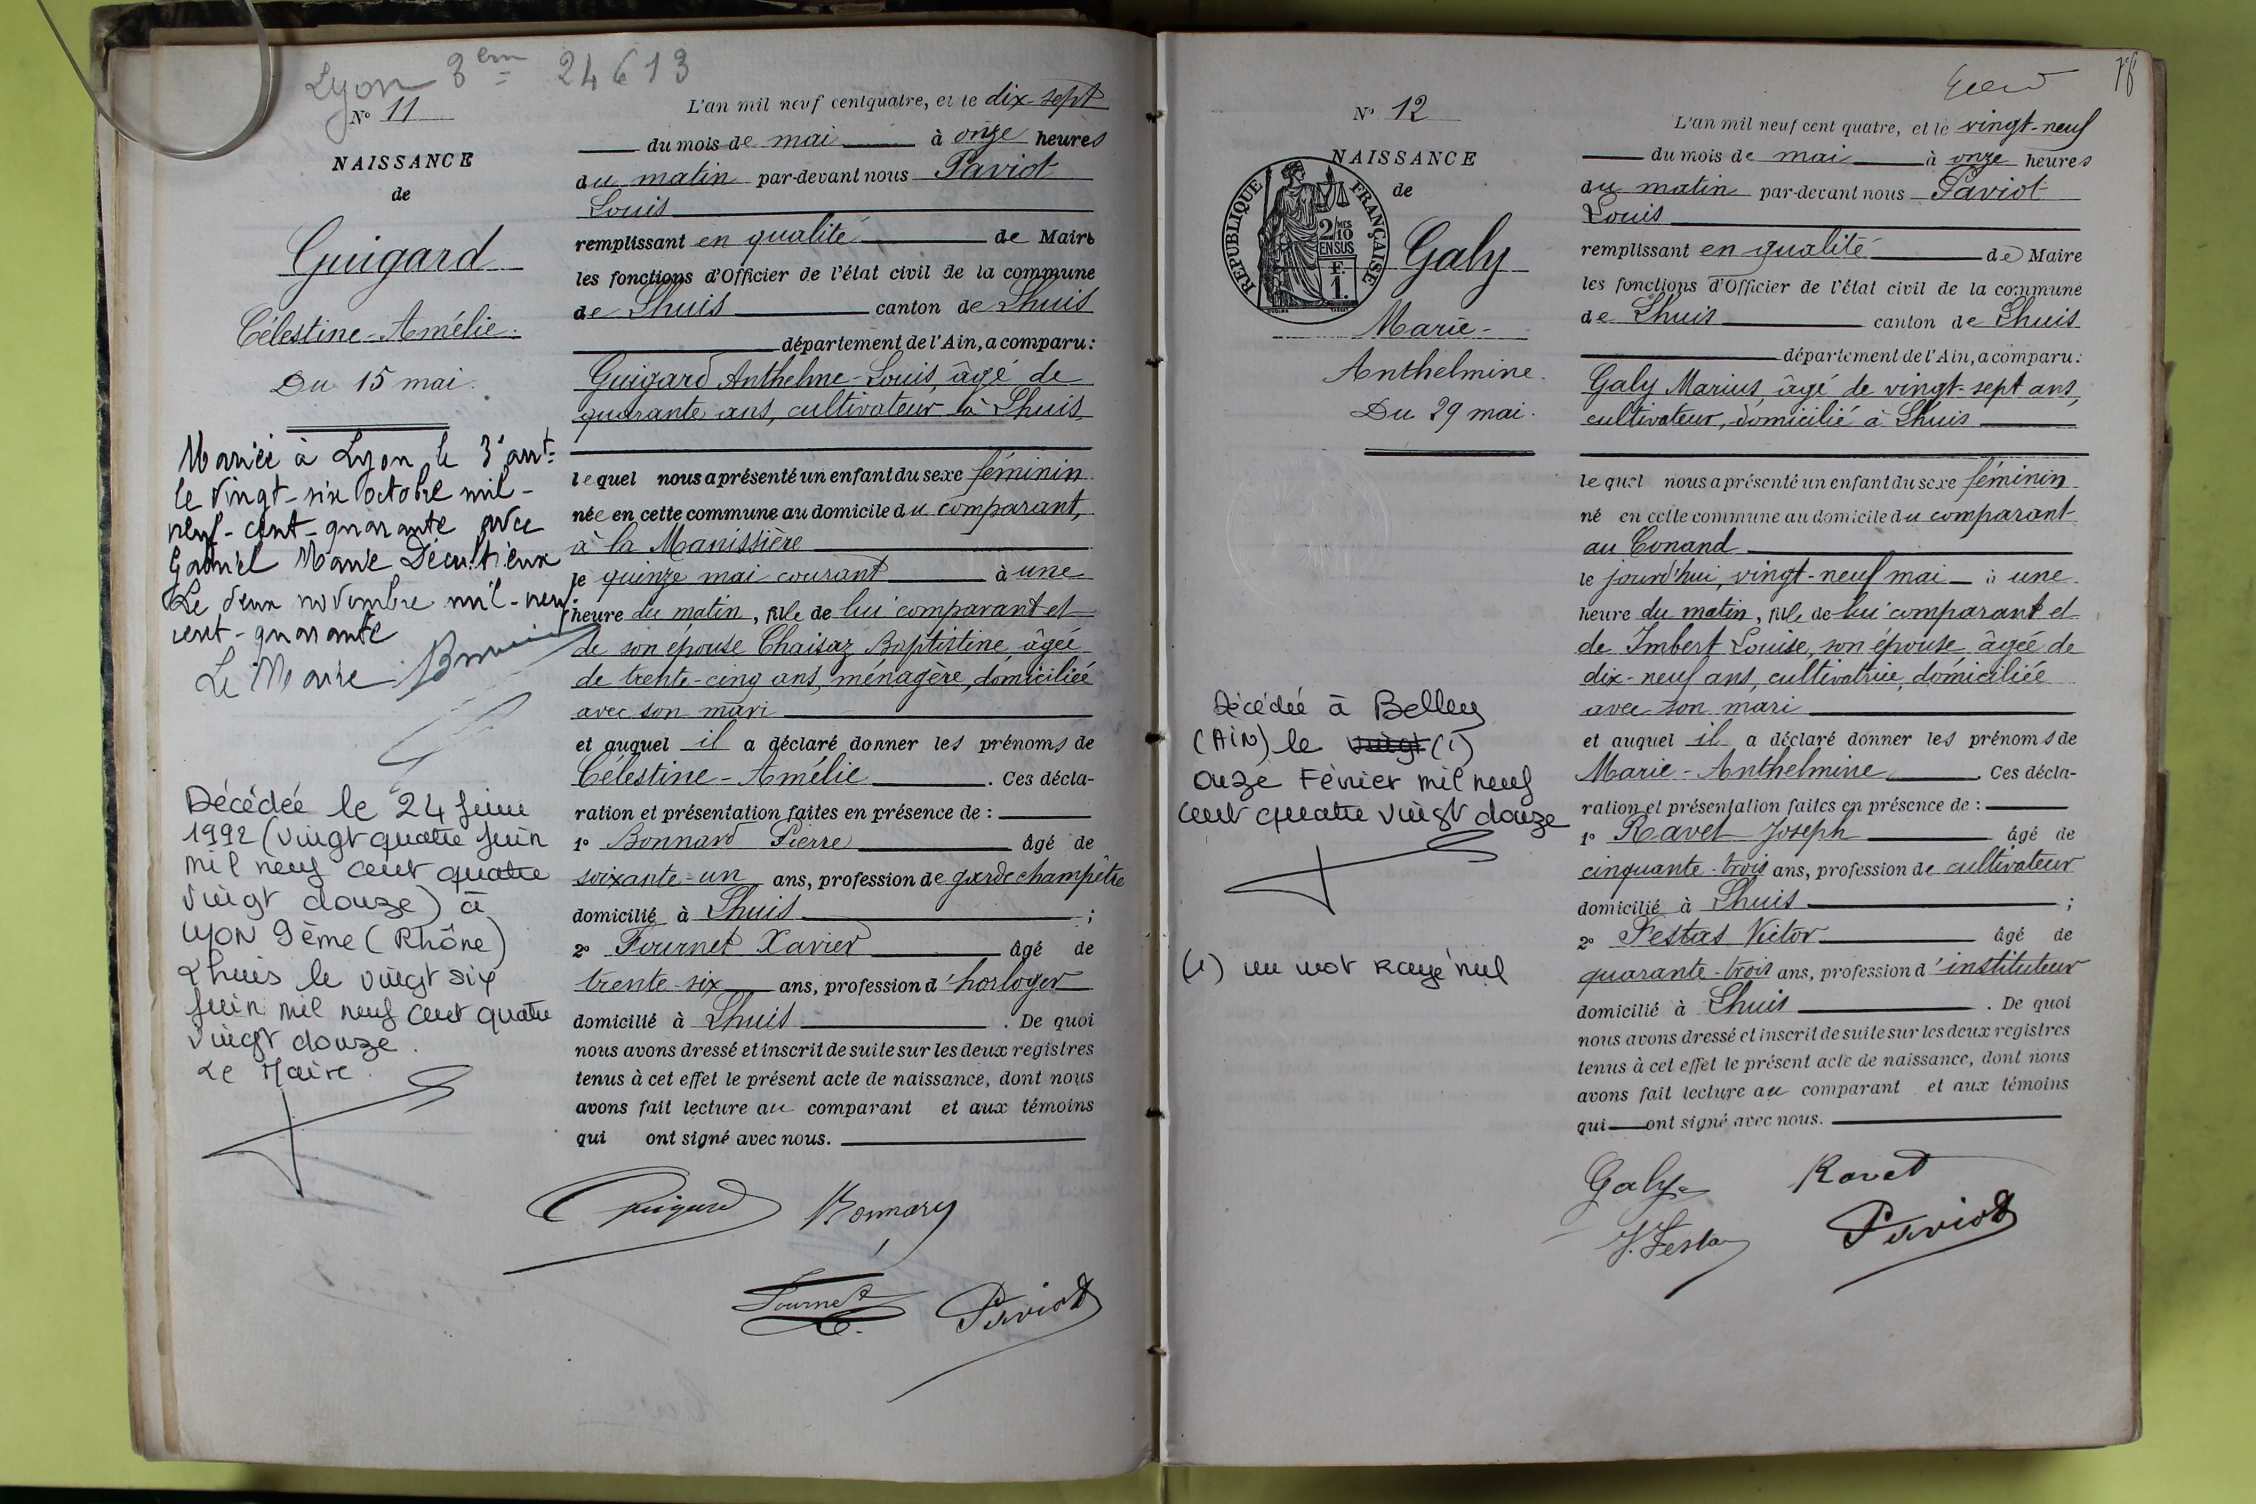 Lyon 3em 24613
N° 11
NAISSANCE
de
Guigard
Célestine-Amélie.
Du 15 mai.
Mariée à Lyon le 3e arrt
le vingt-six octobre mil-
neuf-cent-quarante avec
Gabriel Marie Décultieux
Le deux novembre mil-neuf-
cent-quarante
Le Maire
Décédée le 24 juin
1992 (vingt quatre juin
mil neuf cent quatre
vingt douze) à
LYON 9ème (Rhône)
Lhuis le vingt six
juin mil neuf cent quatre
vingt douze.
Le Maire.
L'an mil neuf cent quatre, et le dix-sept
du mois de mai à onze heures
du matin par-devant nous Paviot
Louis
remplissant en qualité de Maire
les fonctions d'Officier de l'état civil de la commune
de Lhuis canton de Lhuis
département de l'Ain, a comparu:
Guigard Anthelme-Louis, âgé de
quarante ans, cultivateur à Lhuis
lequel nous a présenté un enfant du sexe féminin
née en cette commune au domicile du comparant,
à la Manissière
le quinze mai courant à une
heure du matin, fille de lui comparant et
de son épouse Chaisaz Baptistine, âgée
de trente-cinq ans, ménagère, domiciliée
avec son mari
et auquel il a déclaré donner les prénoms de
Célestine-Amélie. Ces décla-
ration et présentation faites en présence de :
1° Bonnard Pierre âgé de
soixante-un ans, profession de garde champêtre
domicilié à Lhuis ;
2° Fournet Xavier âgé de
trente-six ans, profession d'horloger
domicilié à Lhuis. De quoi
nous avons dressé et inscrit de suite sur les deux registres
tenus à cet effet le présent acte de naissance, dont nous
avons fait lecture au comparant et aux témoins
qui ont signé avec nous.
Guigard Bonnard
Fournet Paviot
N° 12
NAISSANCE
de
REPUBLIQUE FRANÇAISE
2/MES
10
EN SUS
F.
1.
Galy
Marie-
Anthelmine.
Du 29 mai.
Décédée à Belley
(AIN) le vingt (1)
onze Février mil neuf
cent quatre vingt douze
(1) un mot rayé nul
L'an mil neuf cent quatre, et le vingt-neuf
du mois de mai à onze heures
du matin par-devant nous Paviot
Louis
remplissant en qualité de Maire
les fonctions d'Officier de l'état civil de la commune
de Lhuis canton de Lhuis
département de l'Ain, a comparu:
Galy Marius, âgé de vingt-sept ans,
cultivateur, domicilié à Lhuis
lequel nous a présenté un enfant du sexe féminin
né en cette commune au domicile du comparant
au Conand
le jourd'hui, vingt-neuf mai à une
heure du matin, fille de lui comparant et
de Imbert Louise, son épouse âgée de
dix-neuf ans, cultivatrice, domiciliée
avec son mari
et auquel il a déclaré donner les prénoms de
Marie-Anthelmine. Ces décla-
ration et présentation faites en présence de :
1° Ravet Joseph âgé de
cinquante-trois ans, profession de cultivateur
domicilié à Lhuis ;
2° Festas Victor âgé de
quarante-trois ans, profession d'instituteur
domicilié à Lhuis. De quoi
nous avons dressé et inscrit de suite sur les deux registres
tenus à cet effet le présent acte de naissance, dont nous
avons fait lecture au comparant et aux témoins
qui ont signé avec nous.
Galy Ravet
V. Festas Paviot